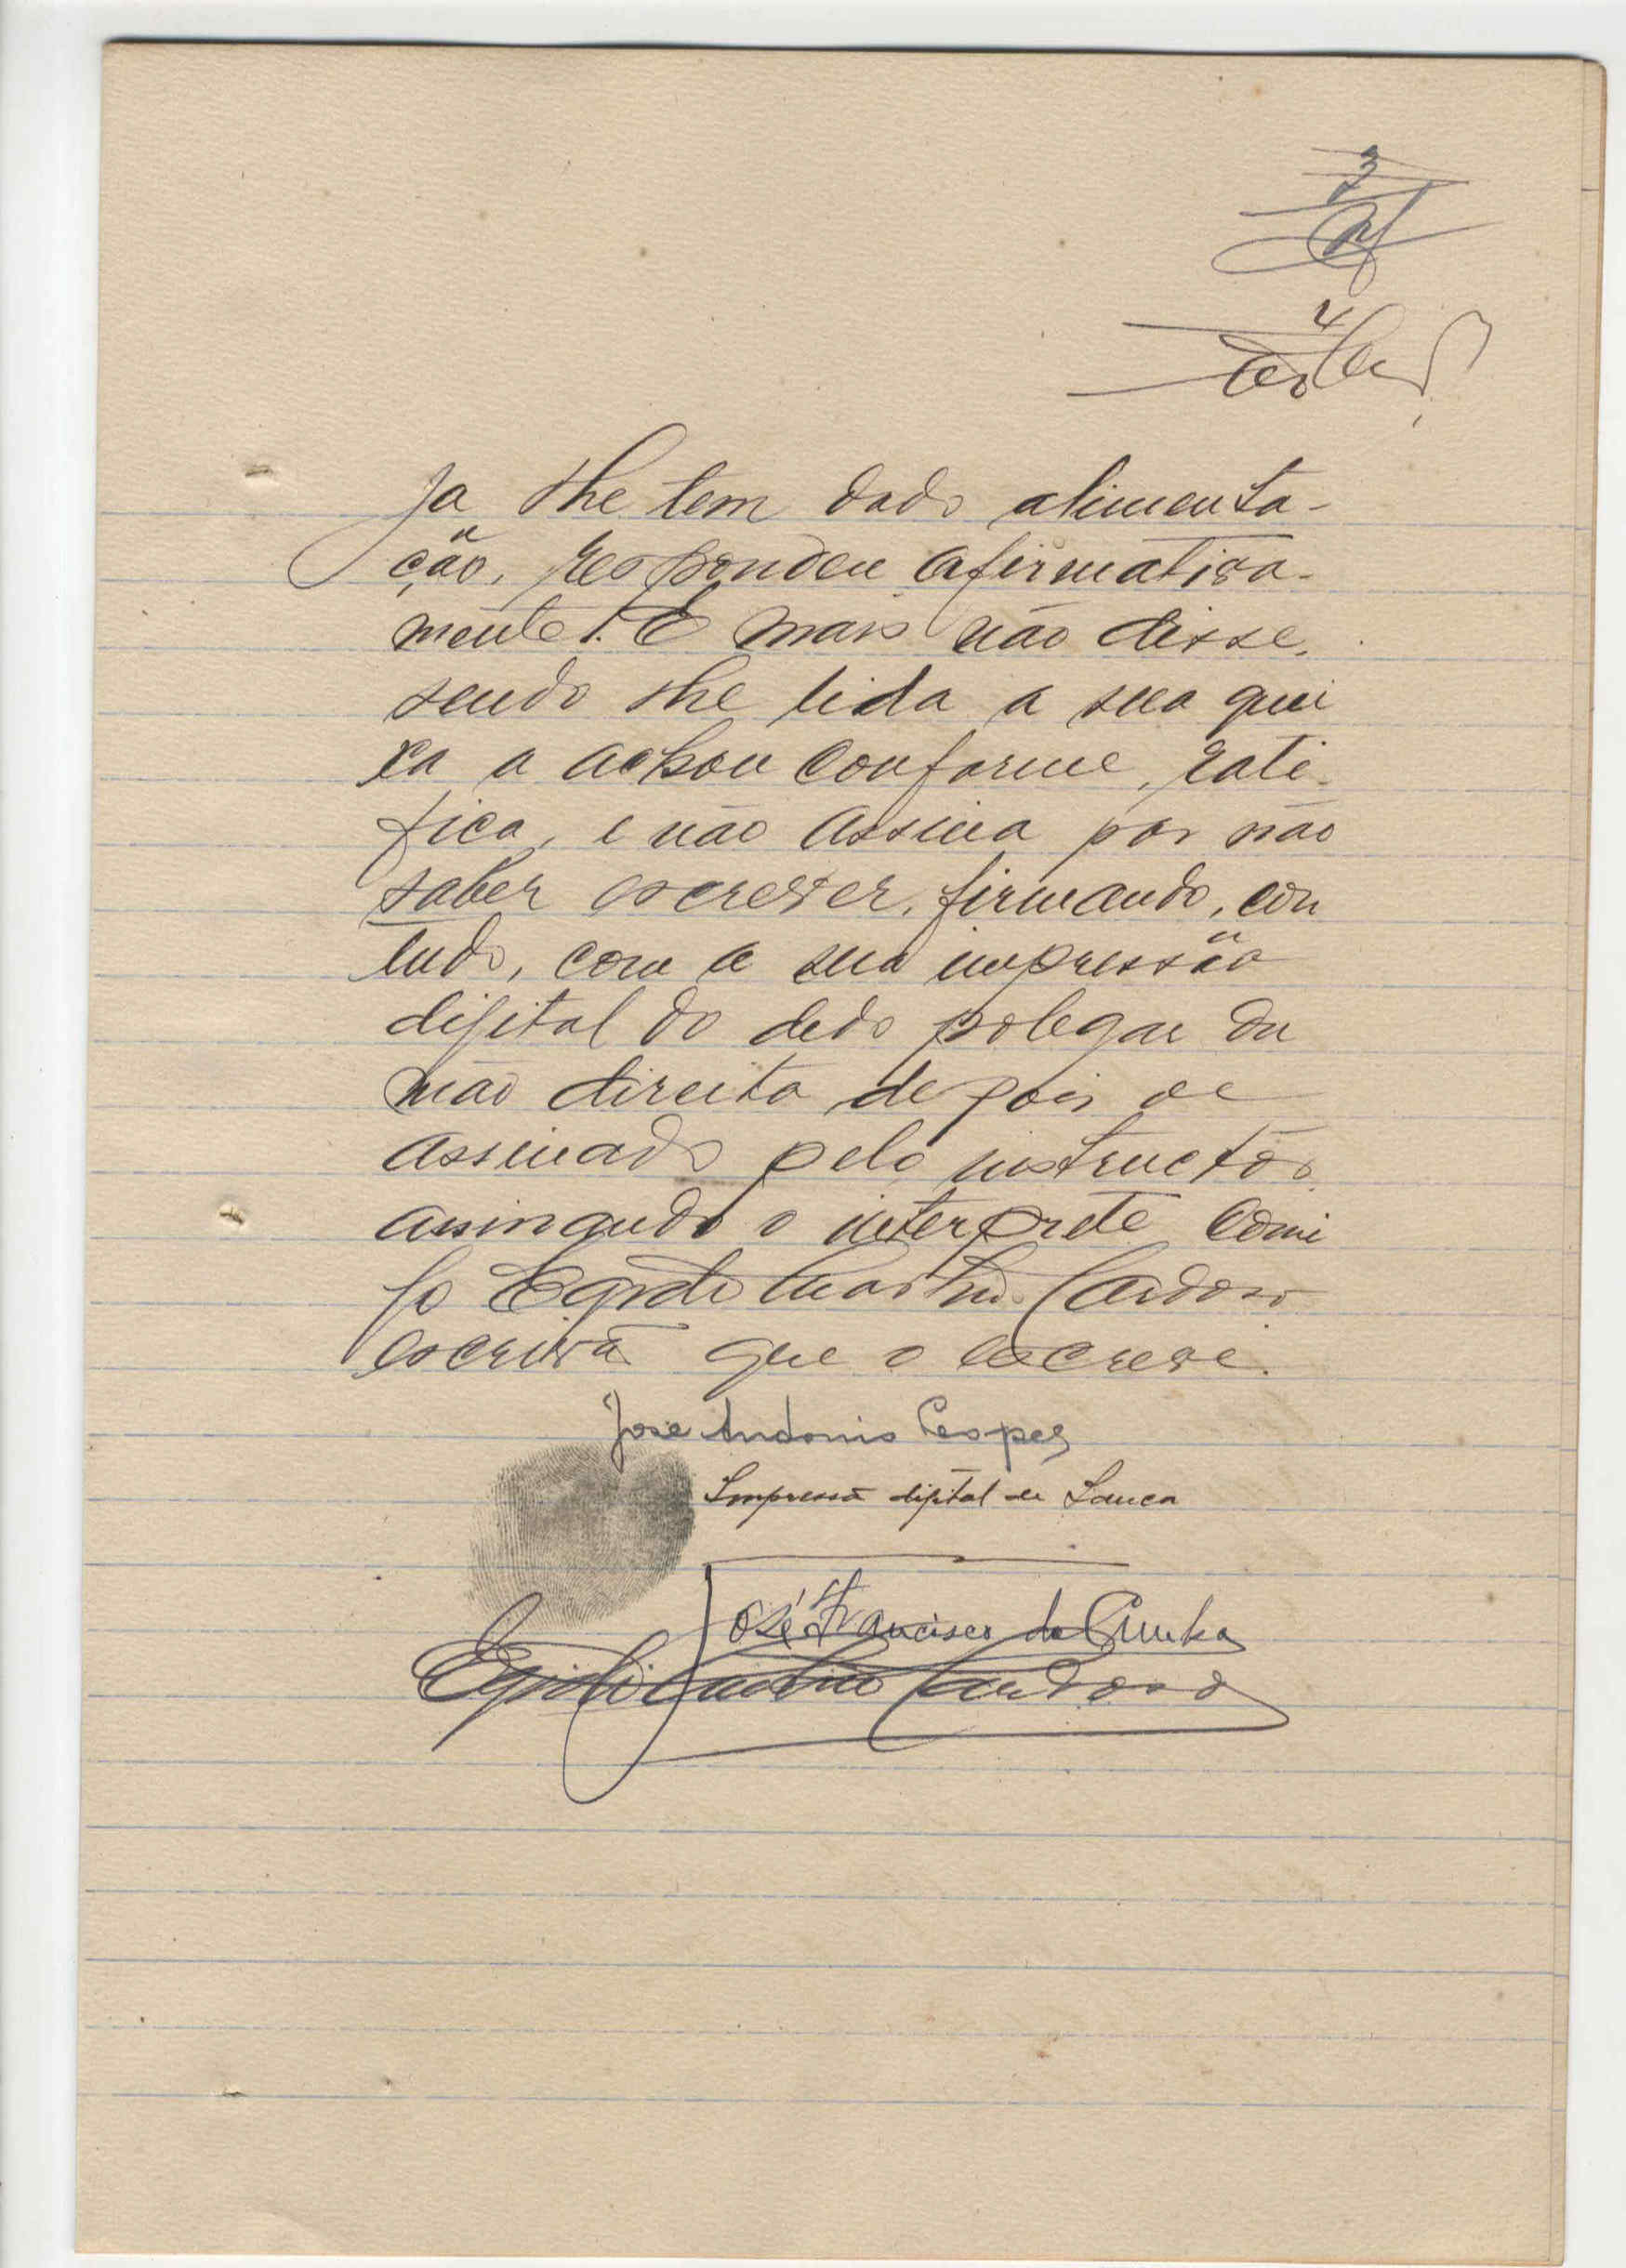 3
4
ja lhe tem dado alimenta-
ção, respondeu afirmativa-
mente. E mais não disse,
sendo lhe lida a sua quei
xa a achou conforme, rati-
fica, e não assina por não
saber escrever, firmando, con
tudo, com a sua impressão
dijital do dedo polegar da
mão direita depois de
assinado pelo instructor
assinando o interprete comi
go Egidio Cardoso
escrivão que o escreve.
José Antonio Lopes
Impressão dijital de Lauca
José Francisco da Cunha
Egidio Cardoso